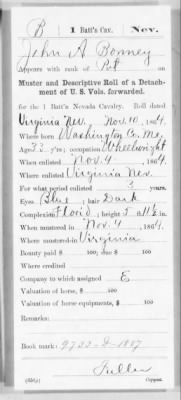 B | 1 Batt's Cav. | Nev.
John A Bonney
Appears with rank of Pvt on
Muster and Descriptive Roll of a Detach-
ment of U. S. Vols. forwarded.
for the 1 Batt'n Nevada Cavalry. Roll dated
Virginia Nev. Nov. 10, 1864.
Where born Washington Co, Me,
Age 33 y'rs; occupation Wheelwright
When enlisted Nov. 4, 1864.
Where enlisted Virginia Nev.
For what period enlisted 3 years.
Eyes Blue; hair Dark
Complexion Florid; height 5 ft. in.
When mustered in Nov. 4, 1864.
Where mustered in Virginia
Bounty paid $ 100; due $ 100
Where credited
Company to which assigned E
Valuation of horse, $ 100
Valuation of horse equipments, $ 100
Remarks:
Book mark: 9722-D-1887
Fuller
Copyist.